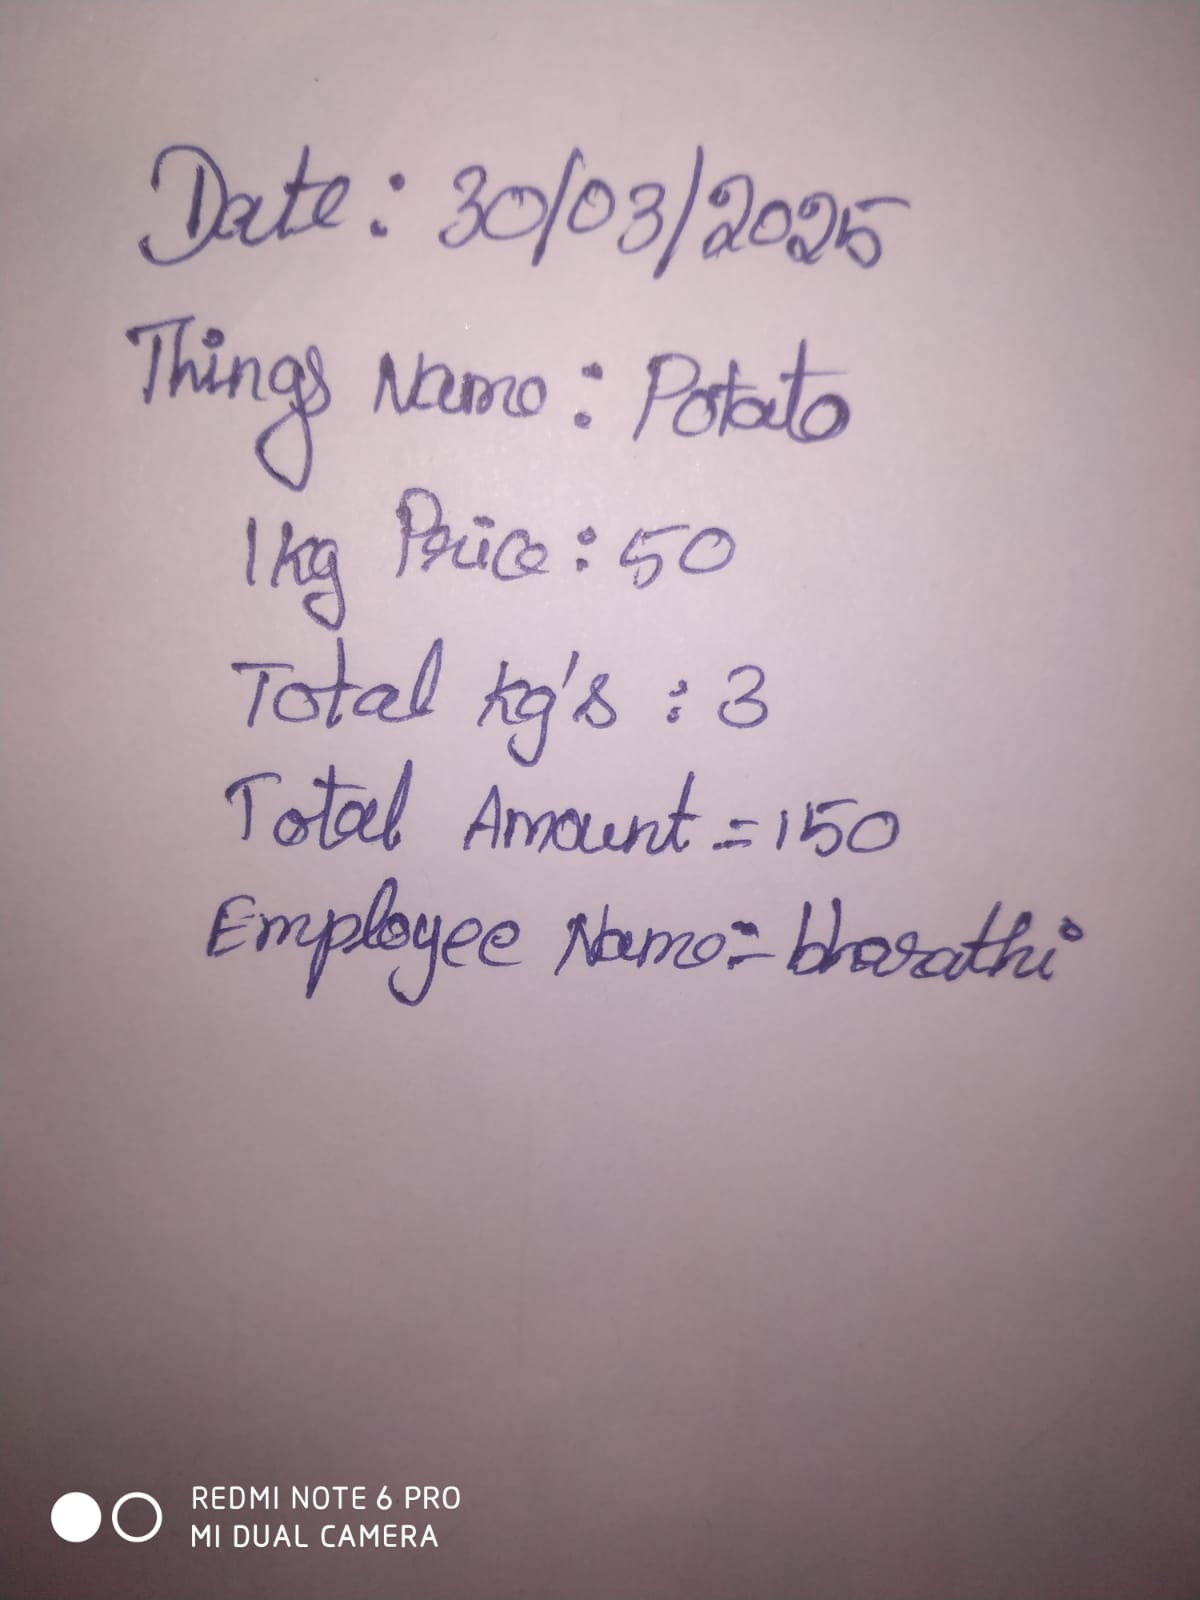 Date: 30/03/2025
Things Name: Potato
1kg Price: 50
Total kg's : 3
Total Amount = 150
Employee Name:- bharathi
REDMI NOTE 6 PRO
MI DUAL CAMERA